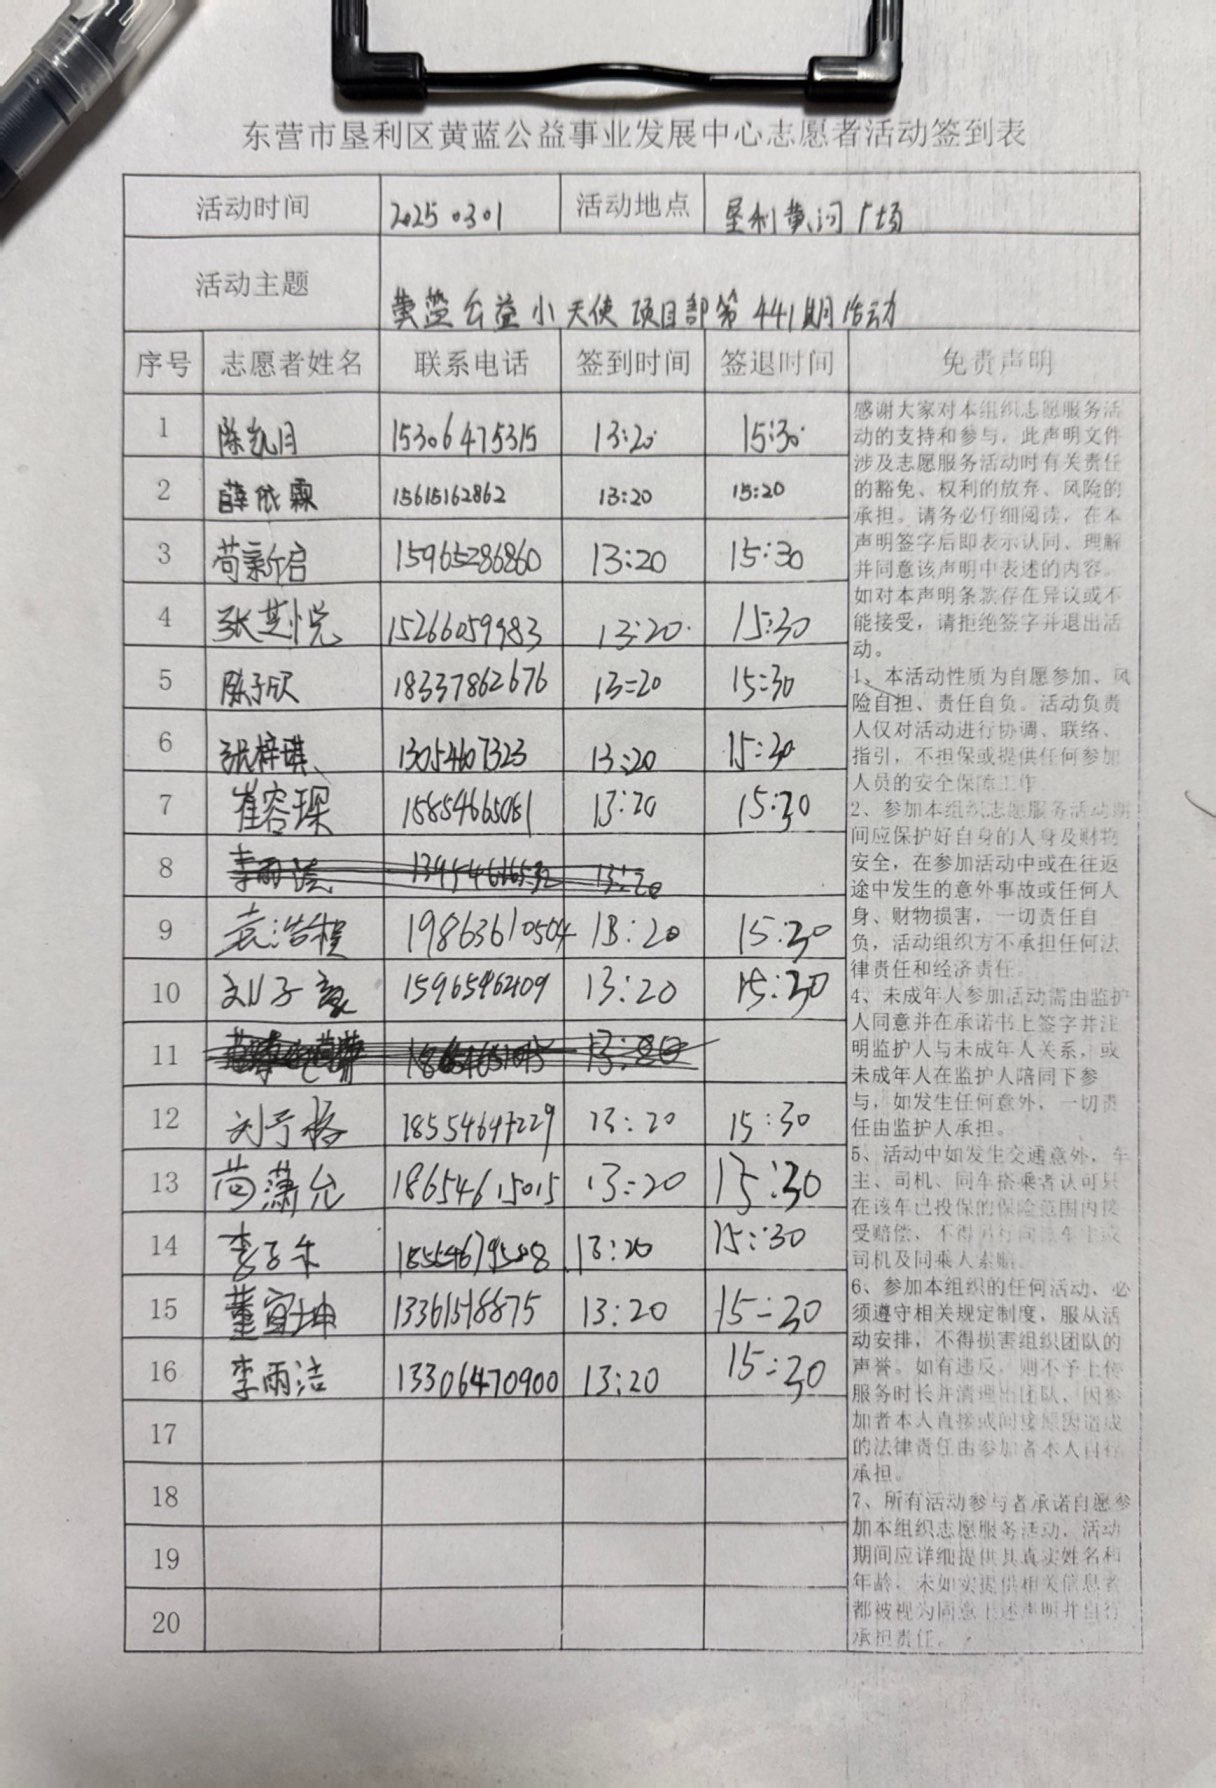 东营市垦利区黄蓝公益事业发展中心志愿者活动签到表
活动时间 2025 0301 活动地点 垦利黄河广场
活动主题 黄蓝公益小天使项目部第441期活动
序号 志愿者姓名 联系电话 签到时间 签退时间 免责声明
1 陈凯月 15306475315 13:20 15:30
2 薛依霖 15615162862 13:20 15:20
3 苟新启 15965286860 13:20 15:30
4 张芝悦 15266059983 13:20 15:30
5 陈子欣 18337862676 13:20 15:30
6 张梓琪 13054607323 13:20 15:30
7 崔容琛 15854665081 13:20 15:30
8 李雨洁 13:20
9 袁浩程 19863610504 13:20 15:30
10 刘子豪 15965462109 13:20 15:30
11
12 刘子格 13:20 15:30
13 苟潇允 18654615015 13:20 15:30
14 李子木 13:20 15:30
15 董宜坤 13361518875 13:20 15:30
16 李雨洁 13306470900 13:20 15:30
17
18
19
20
感谢大家对本组织志愿服务活
动的支持和参与，此声明文件
涉及志愿服务活动时有关责任
的豁免、权利的放弃、风险的
承担。请务必仔细阅读，在本
声明签字后即表示认同、理解
并同意该声明中表述的内容。
如对本声明条款存在异议或不
能接受，请拒绝签字并退出活
动。
1、本活动性质为自愿参加、风
险自担、责任自负。活动负责
人仅对活动进行协调、联络、
指引，不担保或提供任何参加
人员的安全保障工作
2、参加本组织志愿服务活动期
间应保护好自身的人身及财物
安全，在参加活动中或在往返
途中发生的意外事故或任何人
身、财物损害，一切责任自
负，活动组织方不承担任何法
律责任和经济责任。
4、未成年人参加活动需由监护
人同意并在承诺书上签字并注
明监护人与未成年人关系，或
未成年人在监护人陪同下参
与，如发生任何意外，一切责
任由监护人承担。
5、活动中如发生交通意外，车
主、司机、同车搭乘者认可只
在该车已投保的保险范围内接
受赔偿，不得另行向该车主或
司机及同乘人索赔。
6、参加本组织的任何活动，必
须遵守相关规定制度，服从活
动安排，不得损害组织团队的
声誉。如有违反，则不予上传
服务时长并清理出团队，因参
加者本人直接或间接原因造成
的法律责任由参加者本人自行
承担。
7、所有活动参与者承诺自愿参
加本组织志愿服务活动，活动
期间应详细提供其真实姓名和
年龄，未如实提供相关信息者
都被视为同意上述声明并自行
承担责任。